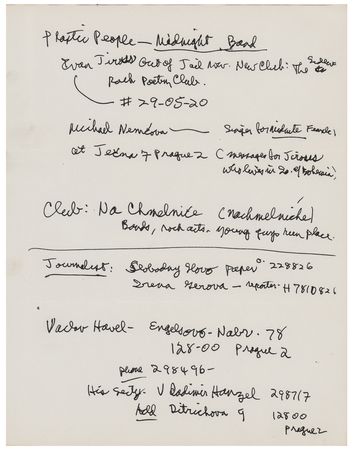 Plastic People — Midnight Band
Evan Jirous Out of Jail now. New Club: The
Rock Poetry Club.
# 29-05-20
Michael Nemcova — Singer for Midnite
at Jexna 7 Prague 2 (messages for Jirous
who lives in So. of Bohemia)
Club: Na Chmelnice (Nachmelniche)
Bands, rock acts - young guys run place.
Journalist: Slobodny Slovo paper 228826
Irena Gerova — reporter: H 7810826
Vaclav Havel - Engelsovo - Nabr. 78
128-00 Prague 2
phone 298496-
His secty. Vladimir Hanzel 298717
Add Ditrichova 9 12800
Prague 2